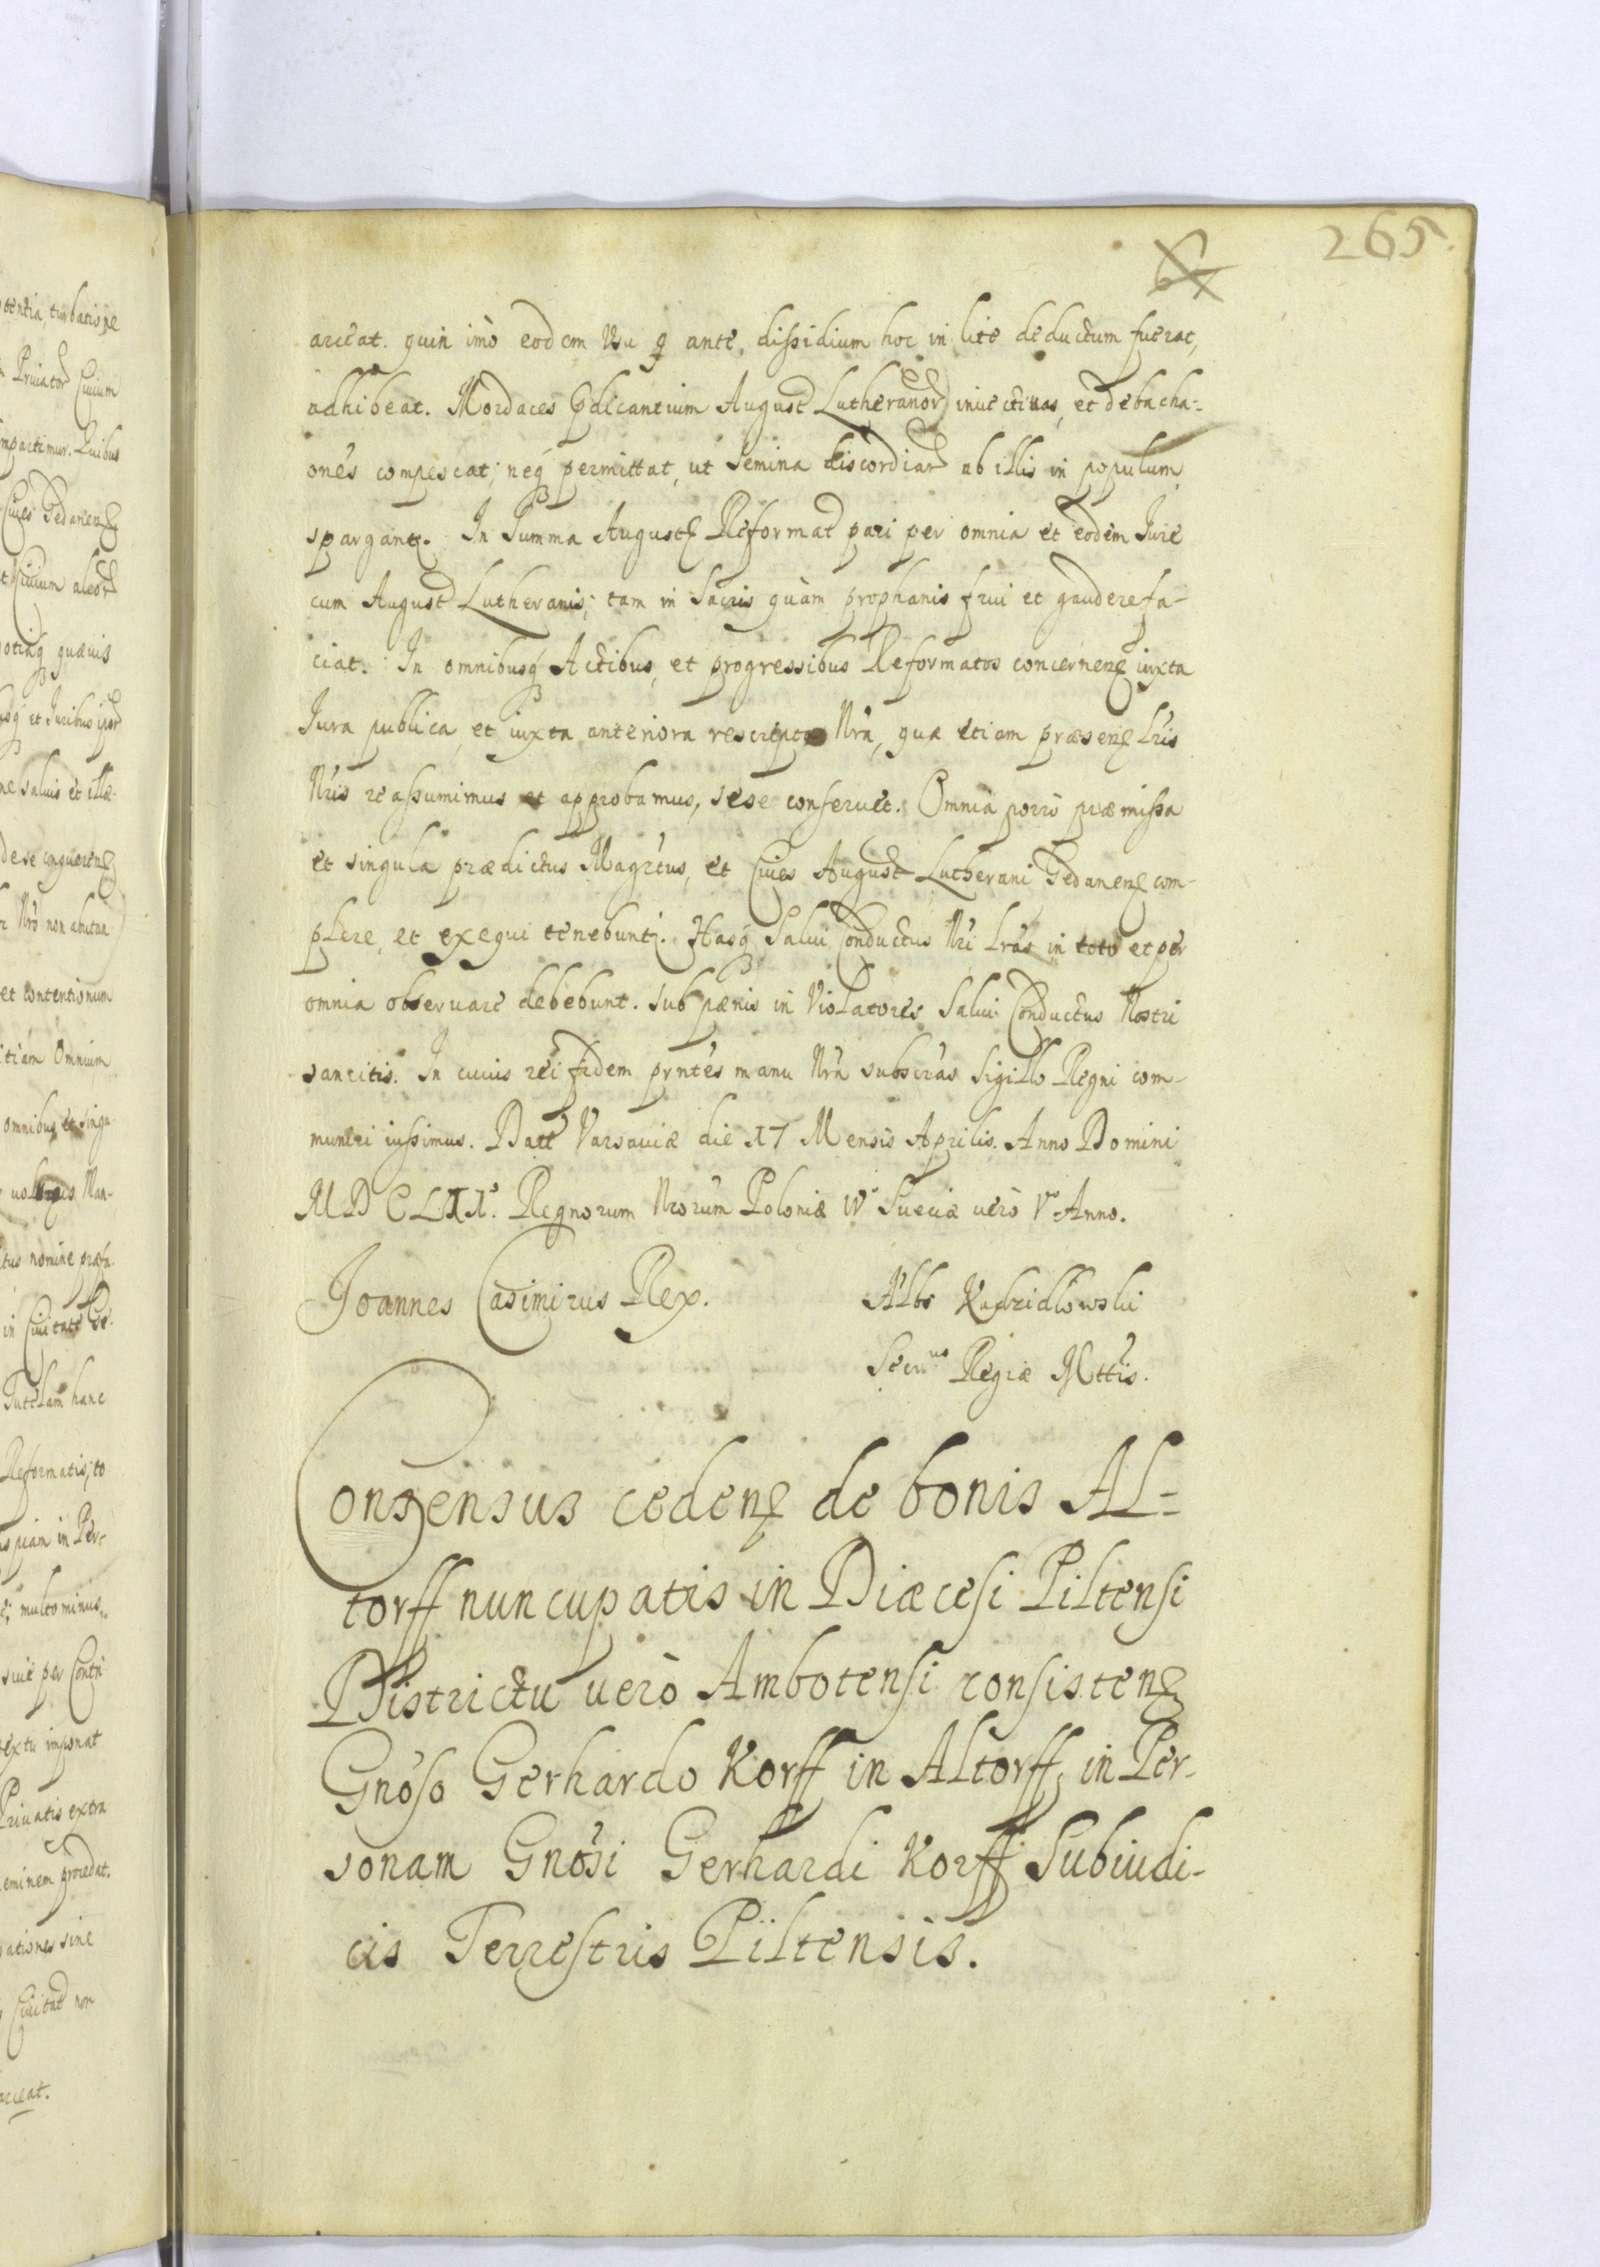 265
67
arceat. quin imò eodem usu q ante, dissidium hoc in lite deductum fuerat,
adhibeat. Mordaces Pdicantium August Lutheranor invectivas, et debacha-
ones compescat; neq permittat, ut semina discordiar ab illis in populum
spargant. In Summa August Reformat pari per omnia et eodem Iure
cum August Lutheranis; tam in Sacris quàm prophanis frui et gaudere fa-
ciat. In omnibusq Actibus, et progressibus Reformatos concernen iuxta
Iura publica, et iuxta anteriora rescripta Nra, quæ etiam præsen Lris
Nris reassumimus et approbamus, sese conseruet. Omnia porrò præmissa
et singula prædictus Magrtus, et Ciues August Lutherani Gedanen com-
plere, et exequi tenebunt. Hasq Salui Conductus Nri Lras in toto et per
omnia obseruare debebunt. sub pœnis in Violatores Salui Conductus Nostri
sancitis. In cuius rei fidem pрntes manu Nra subscras Sigillo Regni com-
muniri iussimus. Datt Varsauiæ die 17 Mensis Aprilis. Anno Domini
Regnorum Nrorum Poloniæ IV Sueciæ verò V Anno.
Joannes Casimirus Rex. Albs Kadzidlowski
Secrius Regiæ Mttis.
Consensus ceden de bonis Al-
torff nuncupatis in Diæcesi Piltensi
Districtu verò Ambotensi consisten
Gnoso Gerhardo Korff in Altorff, in Per-
sonam Gnosi Gerhardi Korff Subiudi-
cis Terrestris Piltensis.